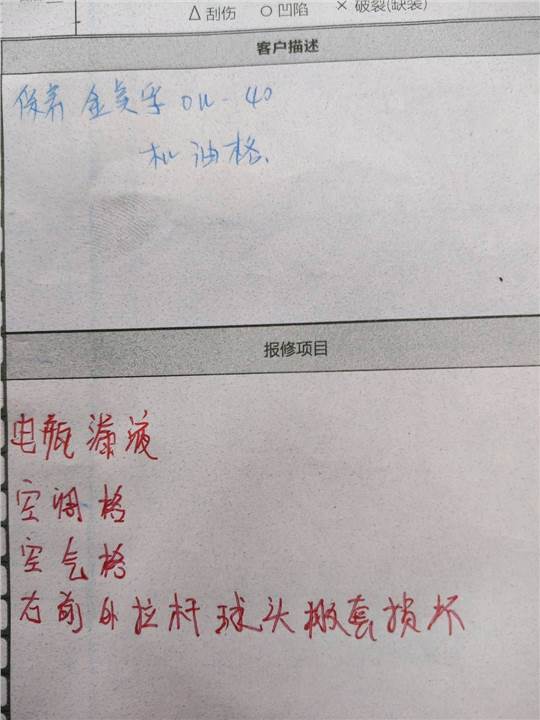 △ 刮伤 ○ 凹陷 × 破裂(缺装)
客户描述
保养 金美孚 0W-40
机油格
报修项目
电瓶漏液
空调格
空气格
右前外拉杆球头胶套损坏